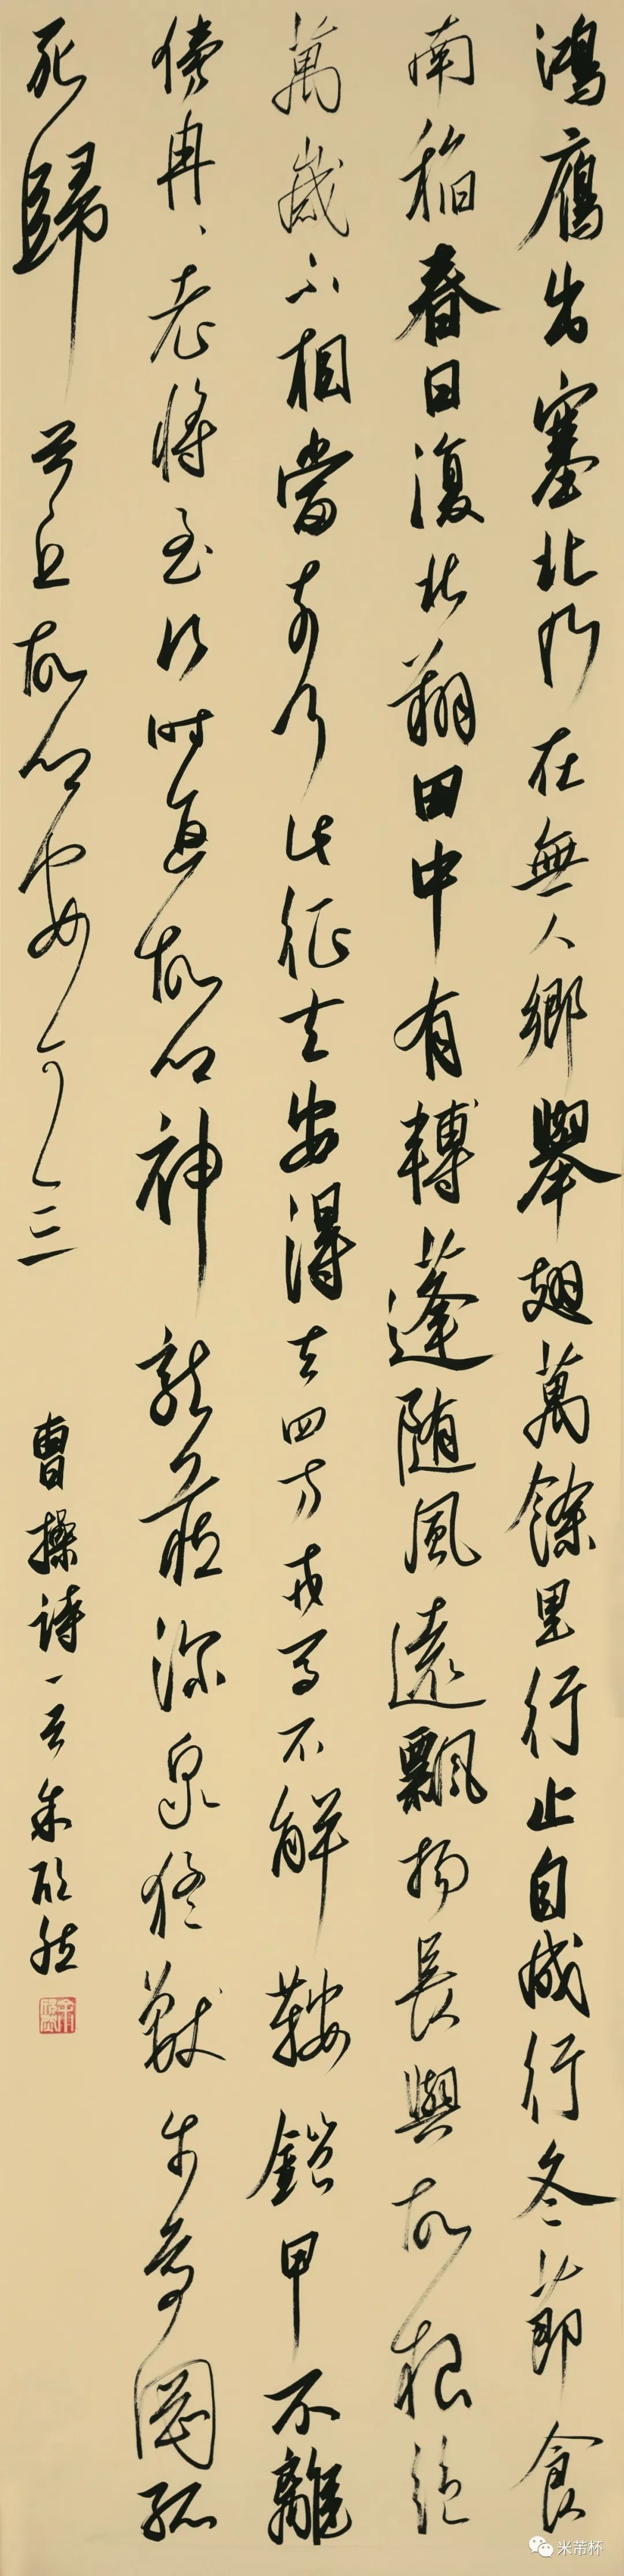 鴻鴈出塞北乃在無人鄉舉翅萬餘里行止自成行冬節食
南稻春日復北翔田中有轉蓬随風遠飄揚長與故根絕
萬歲不相當奈何此征夫安得去四方戎馬不解鞍鎧甲不離
傍冉、老將至何時返故鄉神龍藏深泉猛獸步高岡狐
死歸首丘故鄉安可忘
曹操詩一首
米芾杯